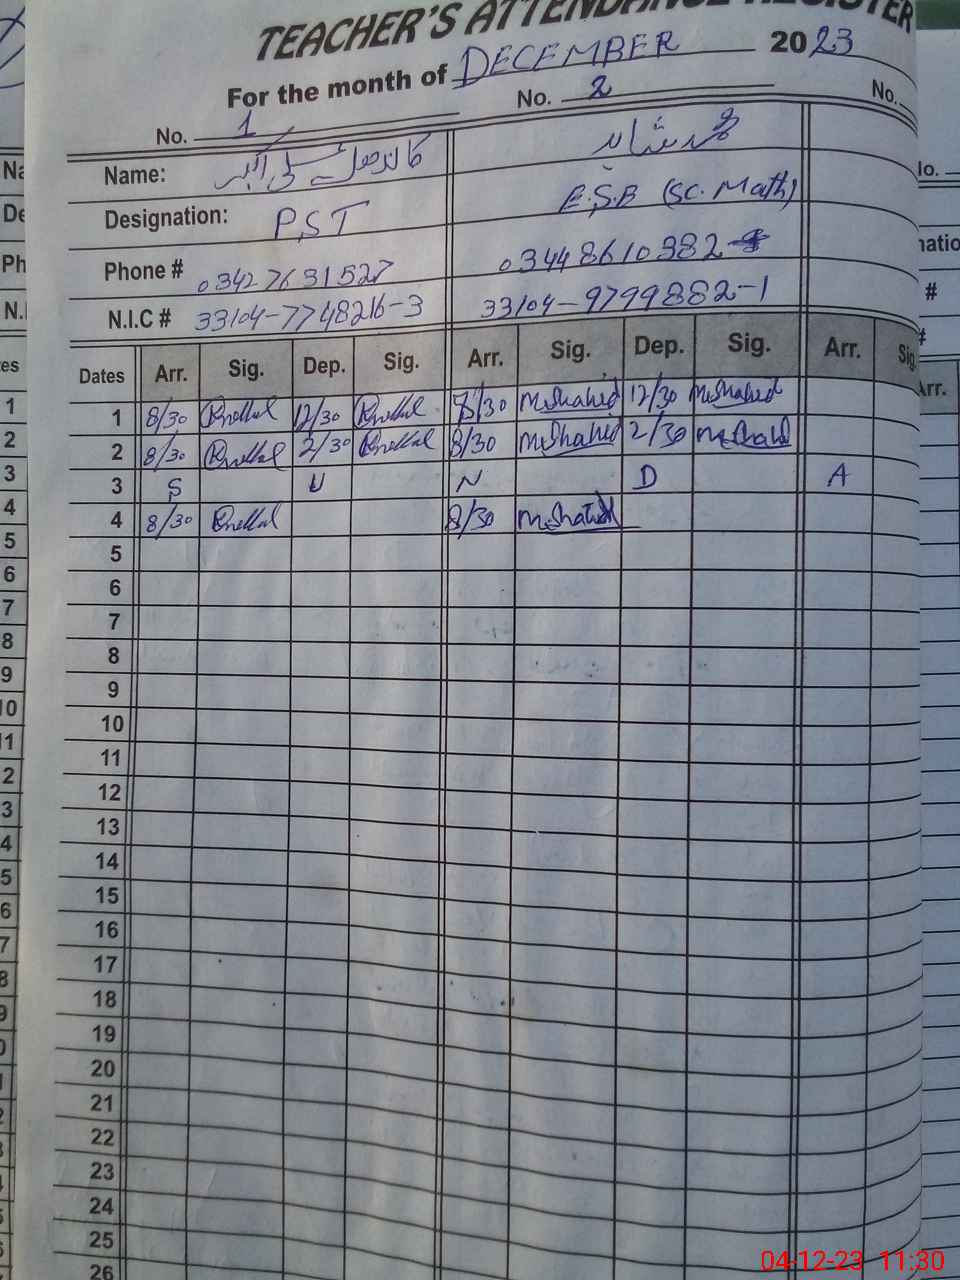 TEACHER'S ATTENDANCE REGISTER
For the month of DECEMBER 2023
No. 1 No. 2 No.
Name: محمد شاہد
Designation: P.S.T E.S.E (SC. Math)
Phone # 03427631527 03448610382
N.I.C # 33104-7748216-3 33104-9799882-1
Dates Arr. Sig. Dep. Sig. Arr. Sig. Dep. Sig. Arr. Sig
1 8/30 12/30 8/30 M.Shahid 12/30 M.Shahid
2 8/30 2/30 8/30 M.Shahid 2/30 M.Shahid
3 S U N D A
4 8/30 8/30 M.Shahid
5
6
7
8
9
10
11
12
13
14
15
16
17
18
19
20
21
22
23
24
25
26
04-12-23 11:30